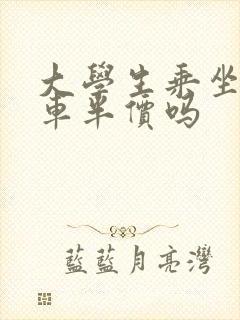 大學生乘坐
車半價嗎
藍藍月亮灣